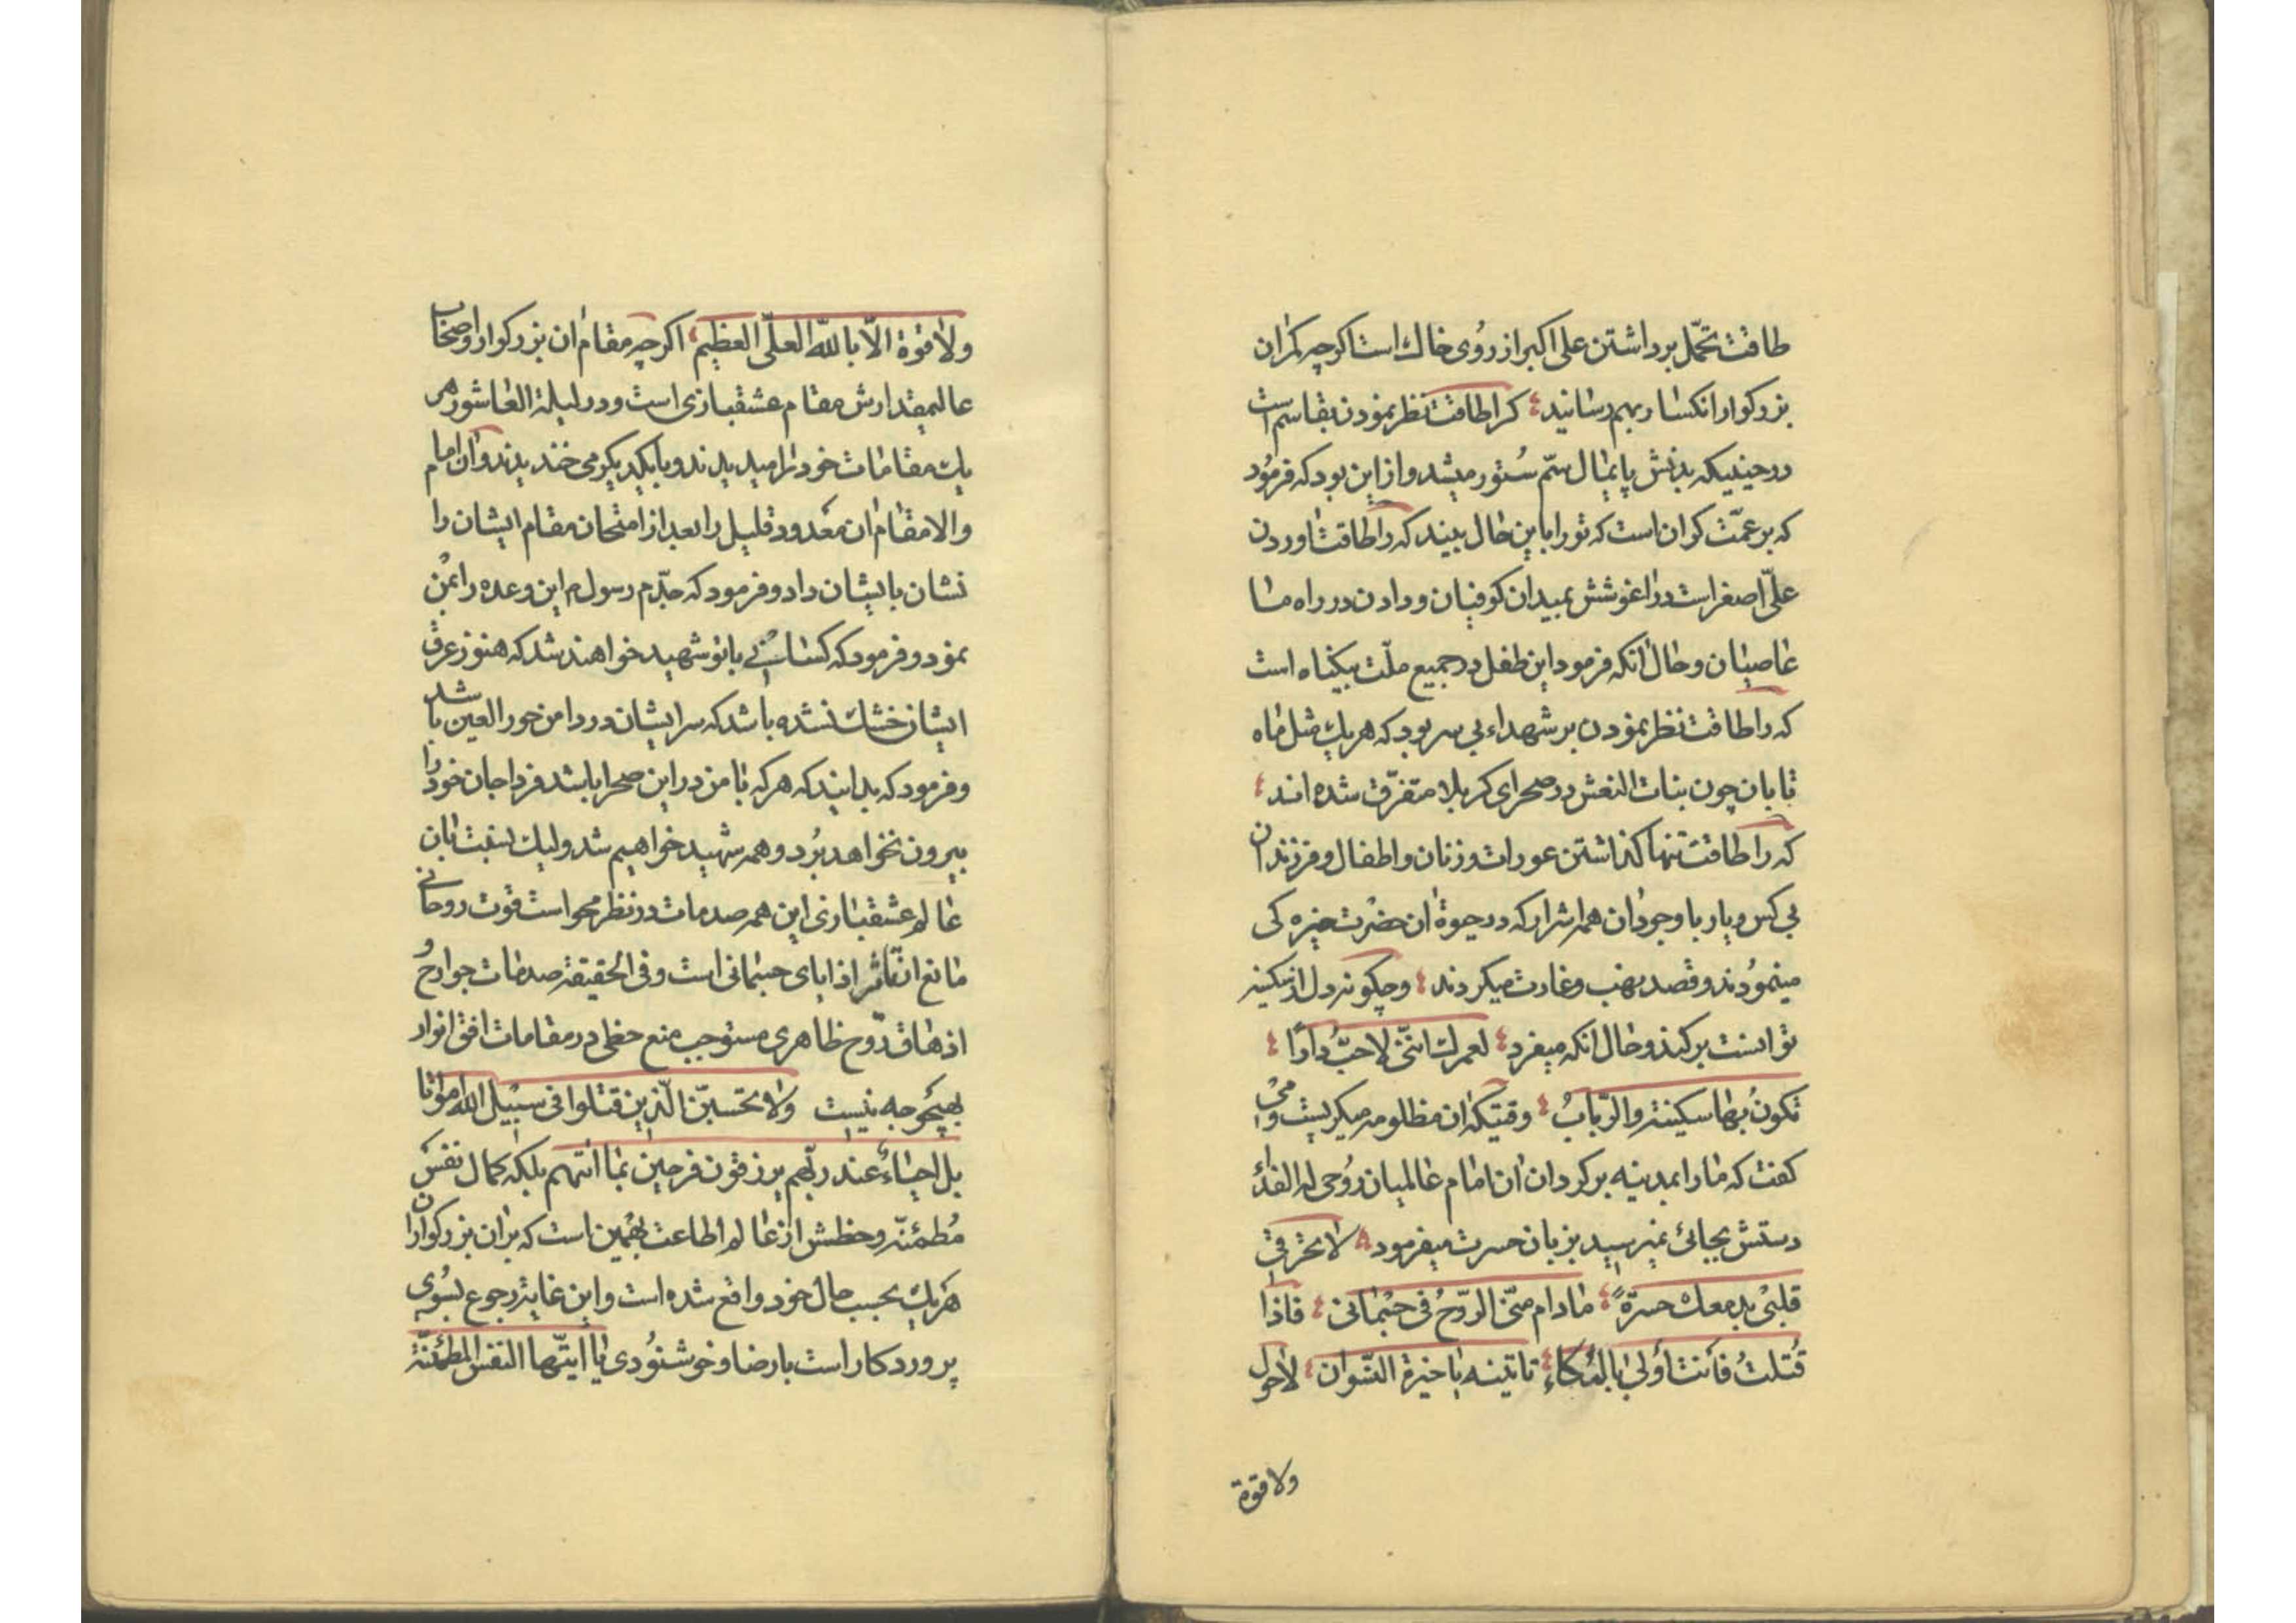 طاقت تحمّل برداشتن علی اکبر از رُوی خاک است اکرچه کمر ان
بزرکوار انکسار بهم رسانید کرا طاقت نظر نمودن بقاسم است
در حینیکه بدنش پایمال سّم سُتور میشد و از این بود که فرمُود
که بر عمّت کران است که تو را باین حال ببیند که را طاقت اوردن
علیّ اصغر است در اغوشش بمیدان کوفیان و دادن در راه ما
عاصیان و حال انکه فرمود این طفل در جمیع ملّت بیکناه است
که را طاقت نظر نمودن بر شهداء بی سر بود که هریک مثل ماه
تابان چون بنات النعش در صحرای کربلا متفرّق شده اند
که را طاقت تنها کذاشتن عورات و زنان و اطفال و فرزندان
بی کس و یار با وجود ان همه اشرار که در حیوة ان حضرت خیره کی
مینمُودند و قصد نهب و غارت میکردند وچکونه دل از سکینه
توانست برکند و حال انکه میفرد لعمرک اننّی لاحبّ دارًا
تکونُ بها سکینة والرّبابُ وقتیکه ان مظلومه میکریست و می
کفت که ما را بمدینه برکردان ان امام عالمیان رُوحی له الفداءُ
دستش بجائی نمیرسید بزبان حسرت میفرمود لا تحرقی
قلبی بدمعک حسرةً مادام منّی الرّوحُ فی جثمانی فاذا
قُتلتُ فأنت أولی بالبُکاءِ تاتینه یا خیرة النّسوان لاحول
ولا قوة
ولا قوة الّا باللّه العلّی العظیم اکرچه مقام ان بزرکوار و اصحاب
عالیمقدارش مقام عشقبازی است و در لیلة العاشور هر
یک مقامات خود را میدیدند و با یکدیکر می خندیدند و ان امام
والا مقام ان معدود قلیل را بعد از امتحان مقام ایشان را
نشان بایشان داد و فرمود که جدّم رسول م این وعده را بمن
نمود و فرمود که کسانی با تو شهید خواهند شد که هنوز عرق
ایشان خشک نشده باشد که سر ایشان در دامن حور العین باشد
و فرمود که بدانید که هر که با من در این صحرا باشد فردا جان خود را
بیرون نخواهد بُرد و همه شهید خواهیم شد ولیک نسبت بان
عالم عشقبازی این همه صدمات در نظر محو است قوت روحانی
مانع ان تاثر اذایای جسمانی است و فی الحقیقة صدمات جوارح و
اذهاق رّوح ظاهری مستوجب منع حظی در مقامات افق انوار
بهیچوجه نیست ولا تحسبّن الّذین قتلوا فی سبیل اللّه امواتا
بل احیاءٌ عند ربّهم یرزقون فرحین بما اتٰیهم بلکه کمال نفس
مُطمئنّه و حظش از عالم اطاعت بهمین است که بر ان بزرکواران
هریک بحسب حال خود واقع شده است و این غایة رجوع بسُوی
پروردکار است با رضا و خوشنُودی یا ایّتها النفس المطمئنّة